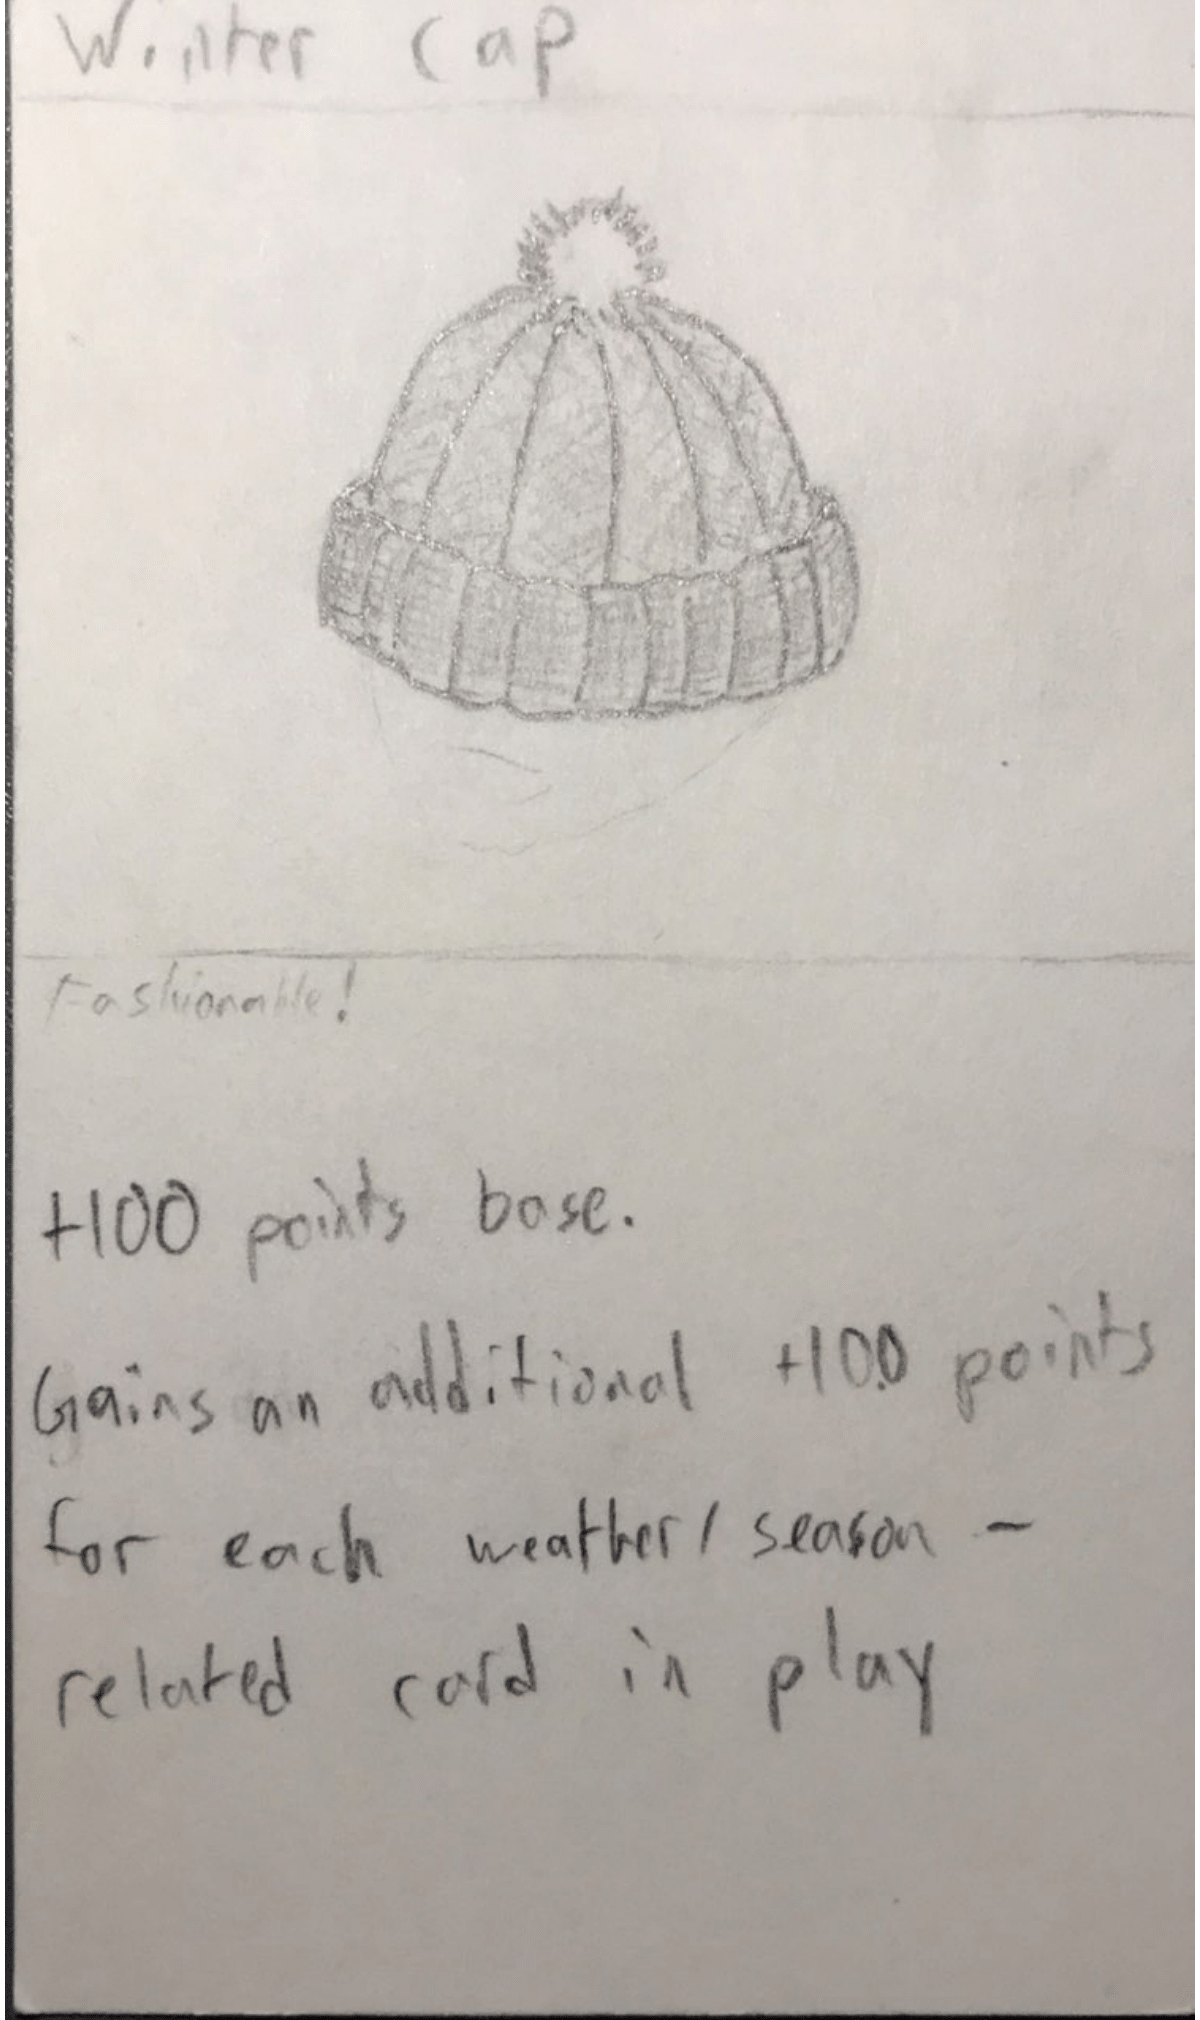 Winter cap
Fashionable!
+100 points base.
Gains an additional +100 points
for each weather/season -
related card in play